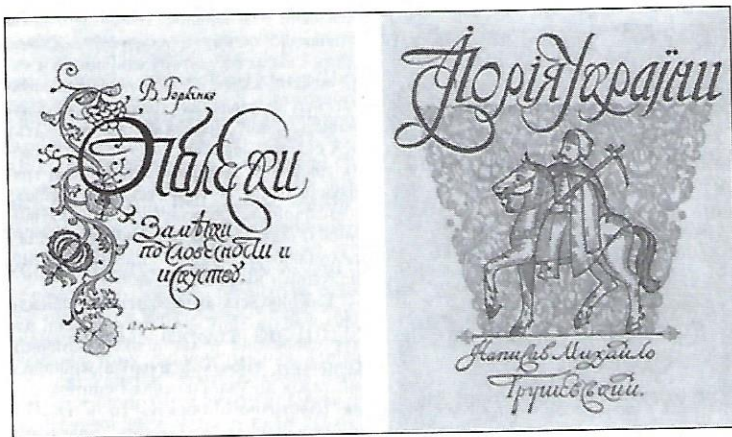 В. Горленко
Отблески
Замѣтки
по словесности и
искусству.
Історія України
Написав Михайло
Грушевський.